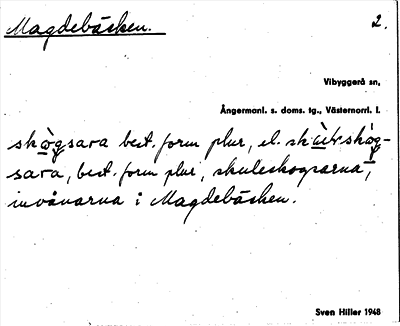 Magdebäcken. 2.
Vibyggerå sn,
Ångermanl. s. doms. tg., Västernorrl. l.
skògsara best. form plur, el. skùleskòg-
sara, best. form plur, skuleskogsarna,
invånarna i Magdebäcken.
Sven Hiller 1948